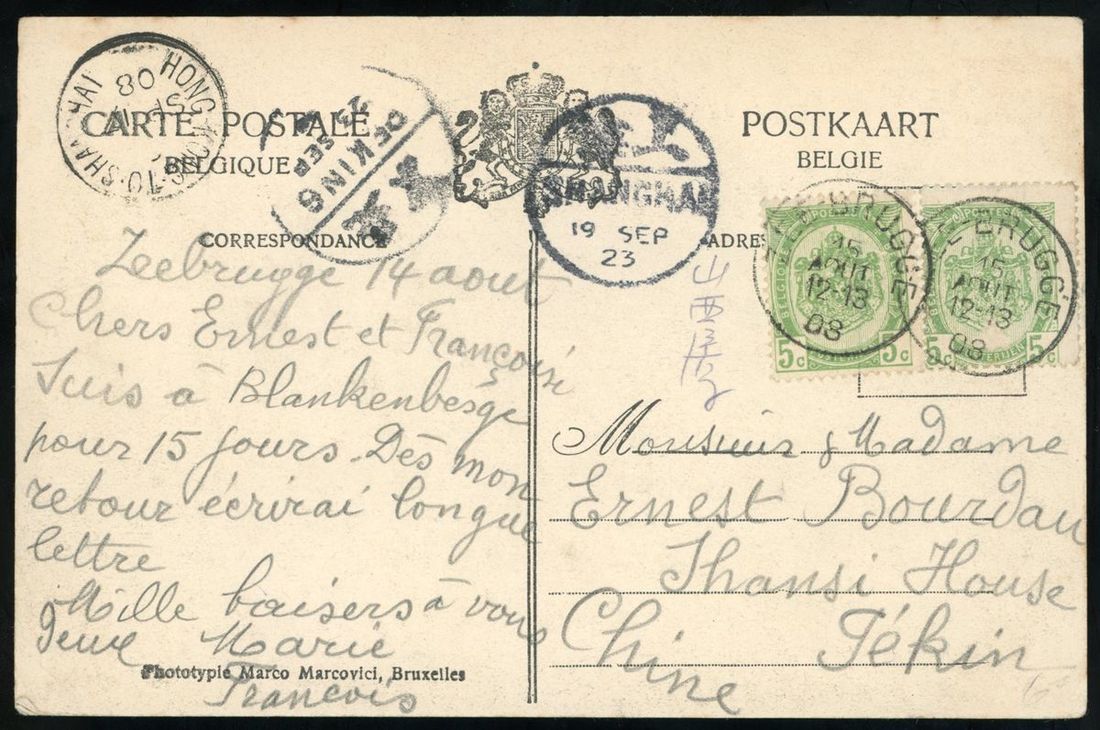 CARTE POSTALE
BELGIQUE
POSTKAART
BELGIE
CORRESPONDANCE
HONG KONG
08
PEKING
23 SEP
SHANGHAI
19 SEP
23
ZEEBRUGGE
15
AOUT
12-13
08
ZEEBRUGGE
15
AOUT
12-13
08
5c 5c
5c 5c
山西
Zeebrugge 14 aout
Chers Ernest et Françoise
Suis à Blankenberge
pour 15 jours. Dès mon
retour écrirai longue
lettre
Mille baisers à vous
deux Marie
François
Phototypie Marco Marcovici, Bruxelles
Monsieur & Madame
Ernest Bourdau
Shansi House
Chine Pékin